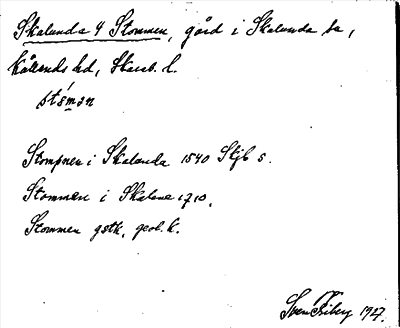 Skalunda 4 Stommen, gård i Skalunda sn,
Kållands hd, Skarab. l.
ståmən
Stompnen i Skalanda 1540 Skjb 5.
Stommen i Skalwna 1710.
Stommen gstk. geol. k.
Sven Friberg 1927.